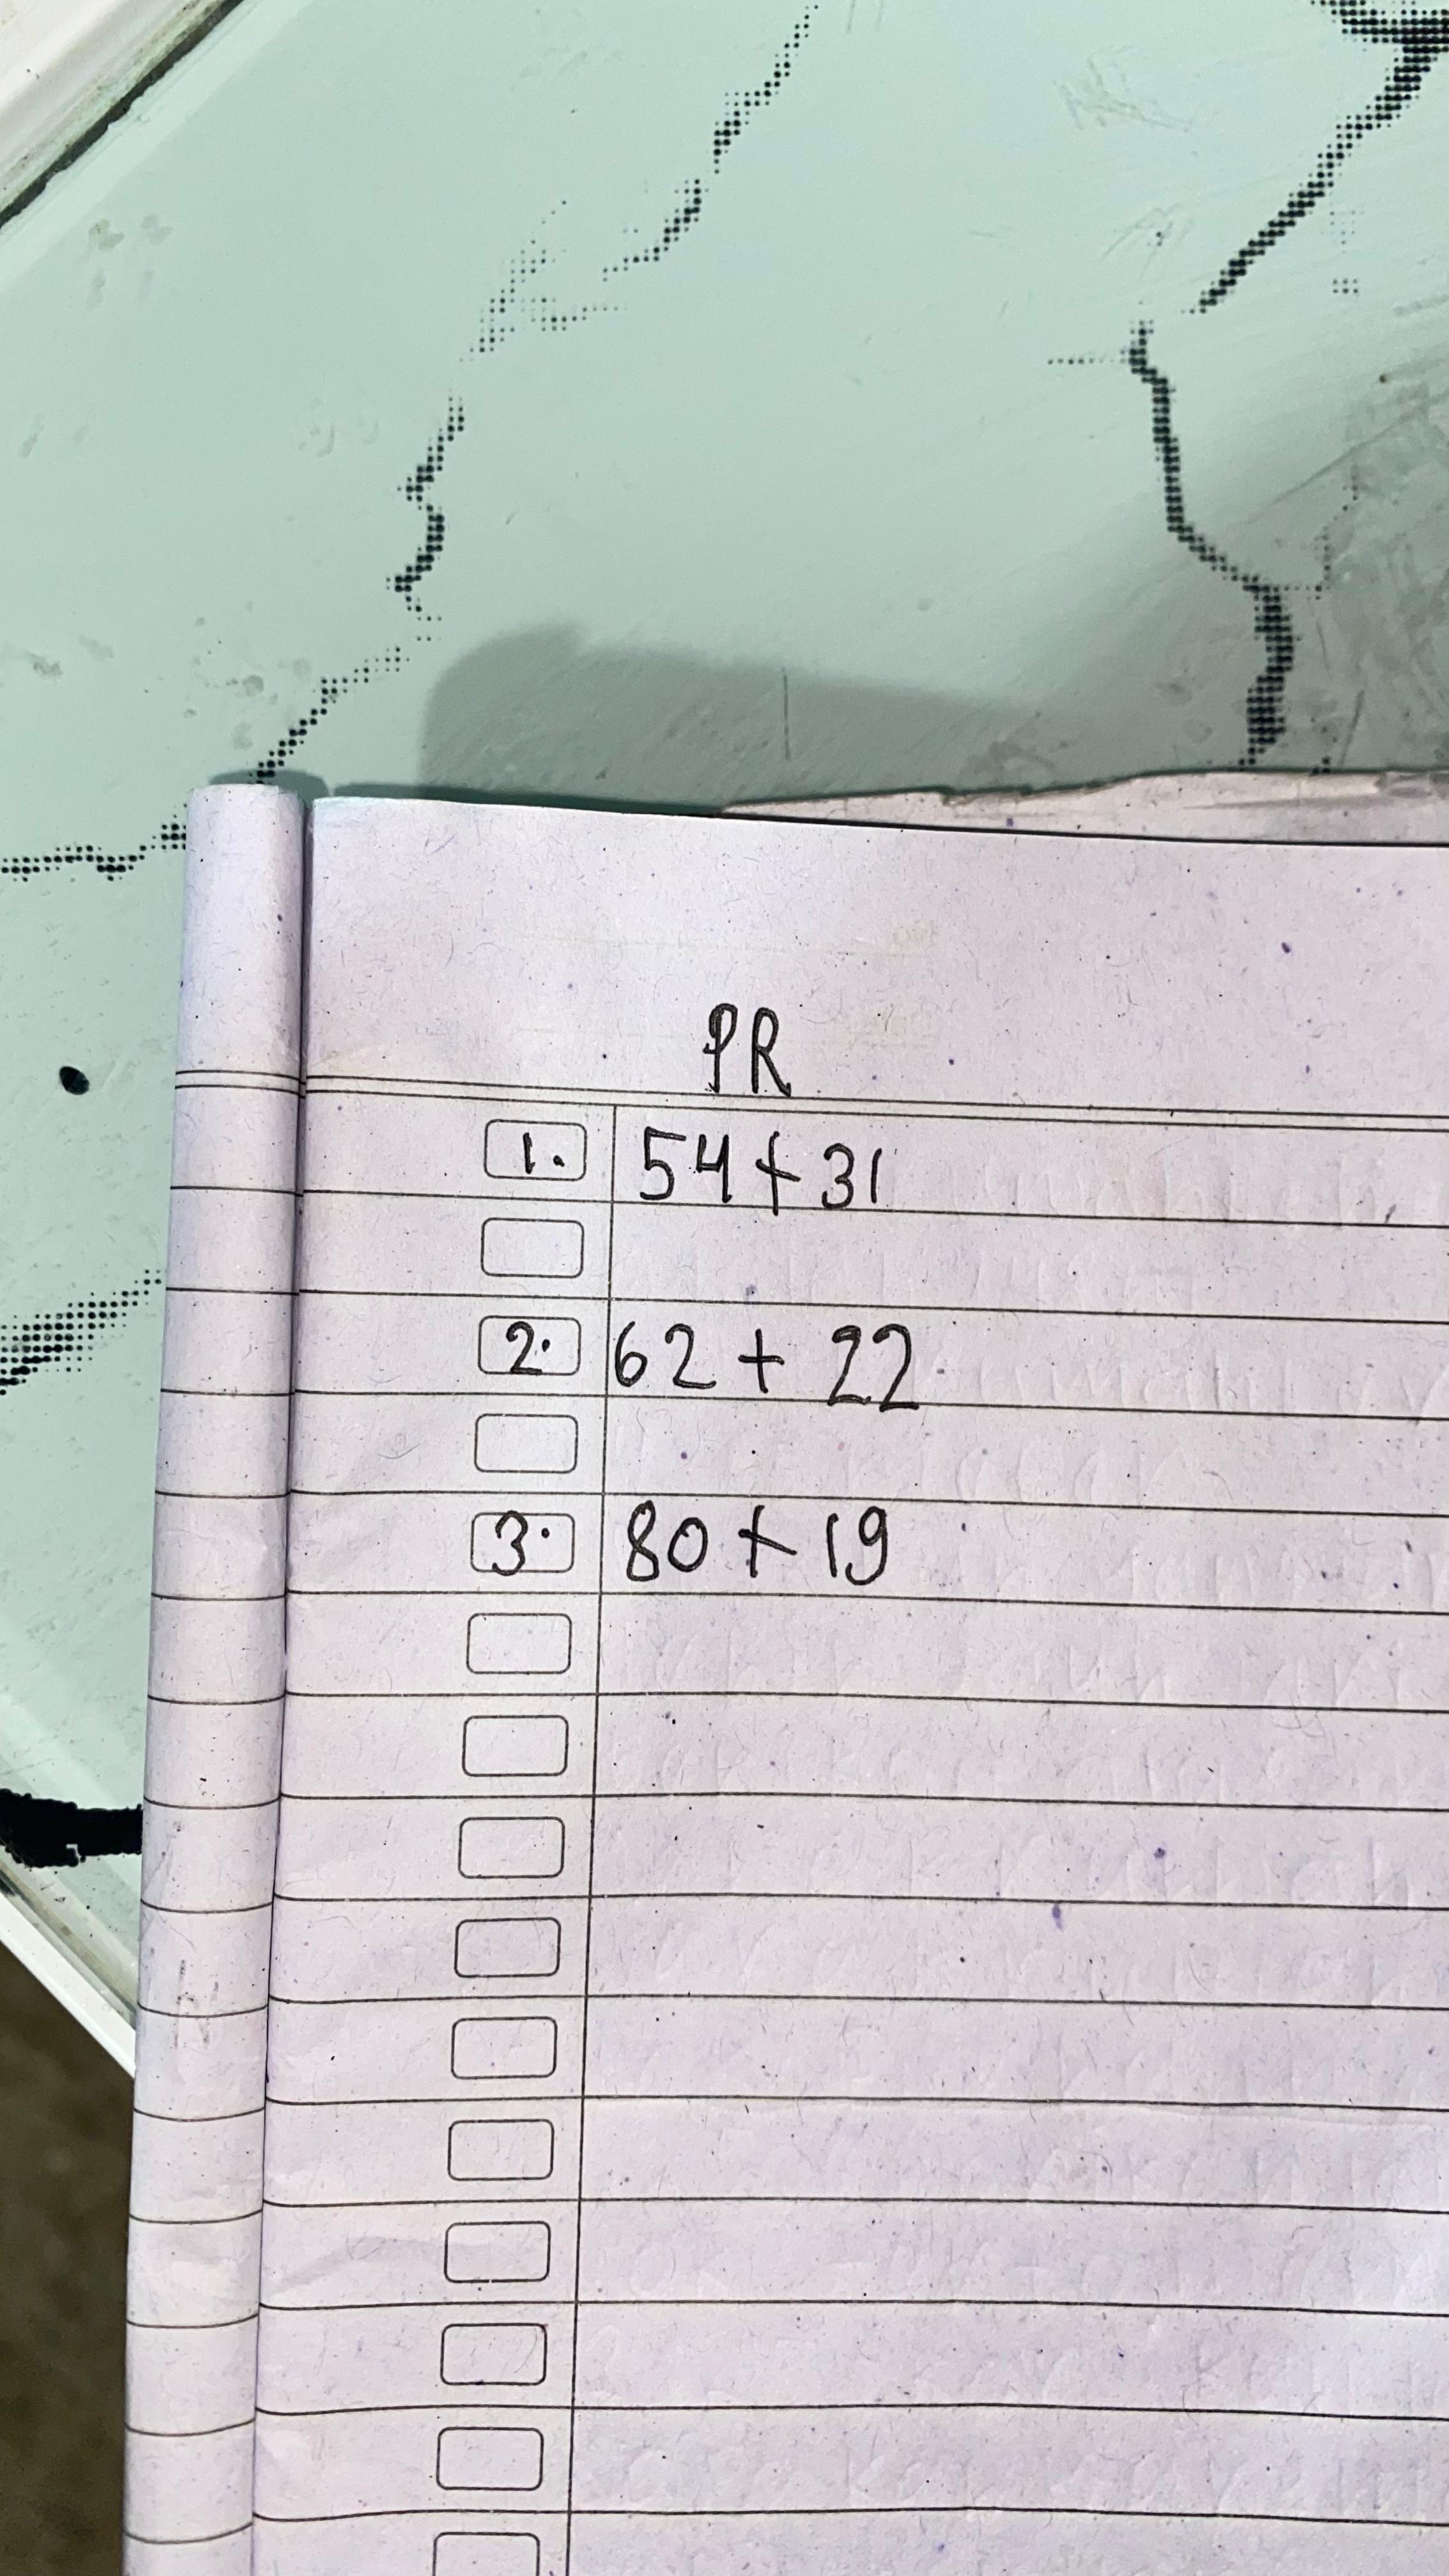 PR
1. 54 + 31
2. 62 + 22
3. 80 + 19